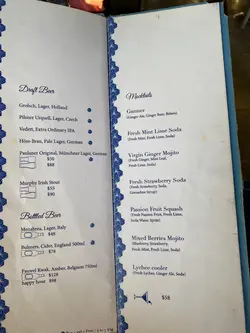 Draft Beer
Grolsch, Lager, Holland
Pilsner Urquell, Lager, Czech
Vedett, Extra Ordinary IPA
Paulaner Original, Münchner Lager, German
$50
$68
Murphy Irish Stout
$55
$90
Bottled Beer
Menabrea, Lager, Italy
Bulmers, Cider, England 500ml
$78
Pauwel Kwak, Amber, Belgium 750ml
$128
happy hour $98
Mocktails
Gunner
(Ginger Ale, Ginger Beer, Bitters)
Fresh Mint Lime Soda
(Fresh Mint, Fresh Lime, Soda)
Virgin Ginger Mojito
(Fresh Ginger, Mint Leaf,
Fresh Lime, Soda)
Fresh Strawberry Soda
(Fresh Strawberry, Soda,
Grenadine Syrup)
Passion Fruit Squash
(Fresh Passion Fruit, Fresh Lime,
Soda Water, Sprite)
Mixed Berries Mojito
(Blueberry, Strawberry,
Fresh Mint, Fresh Lime, Soda)
Lychee cooler
(Fresh Lychee, Ginger Ale, Soda)
$58